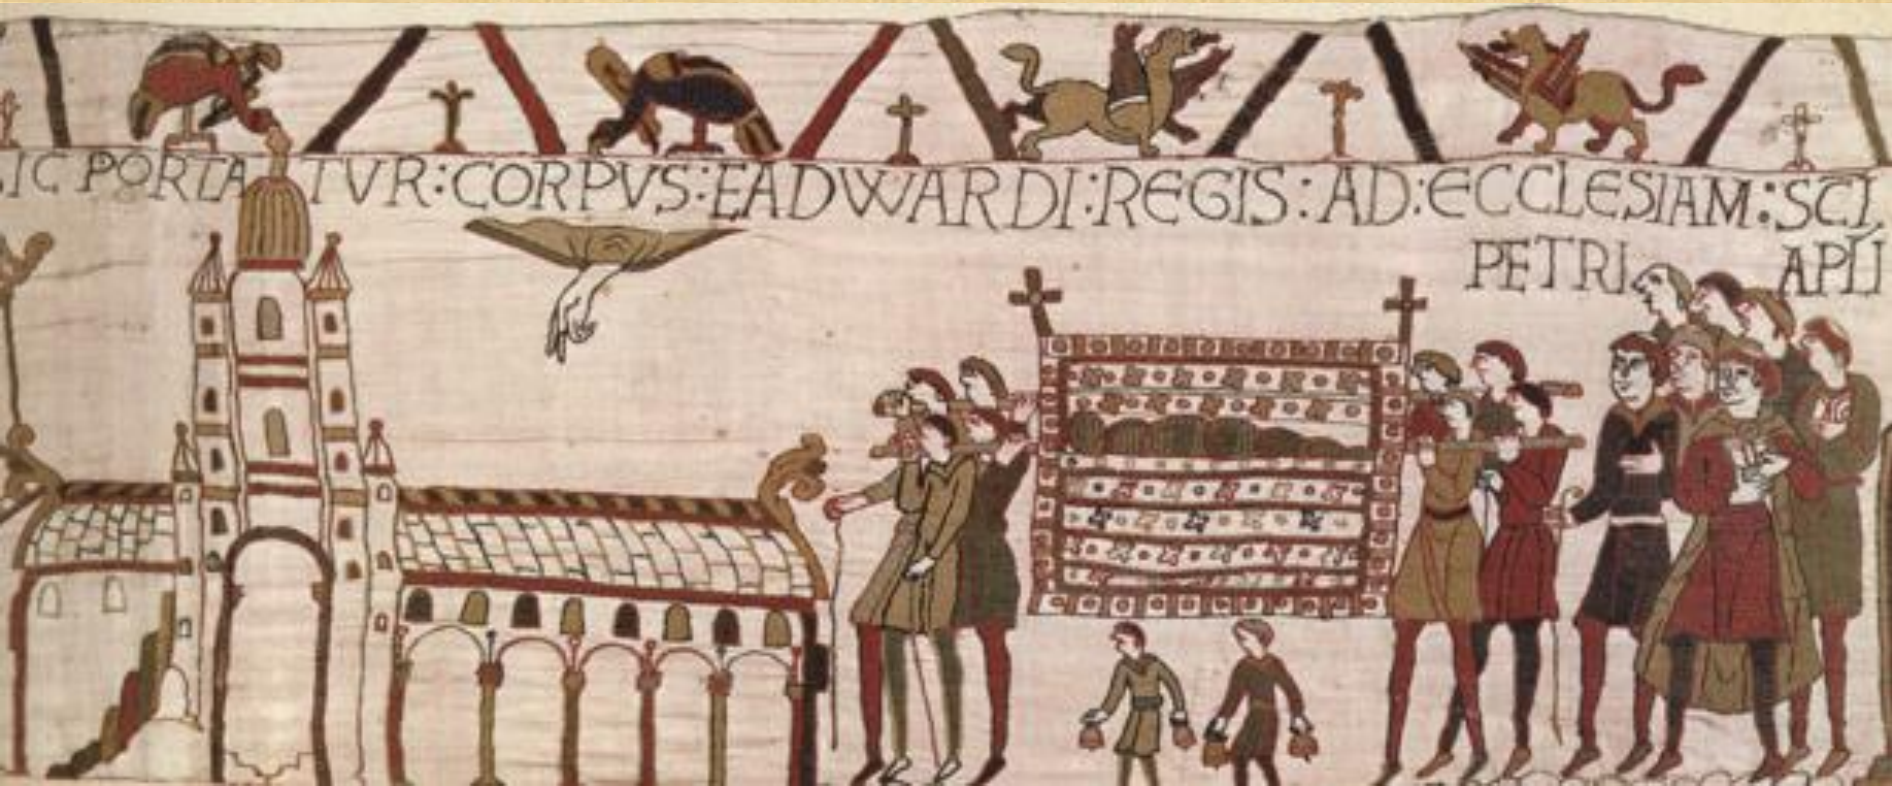 IC PORTA TVR:CORPVS:EADWARDI:REGIS:AD:ECCLESIAM:SCI,
PETRI APLI